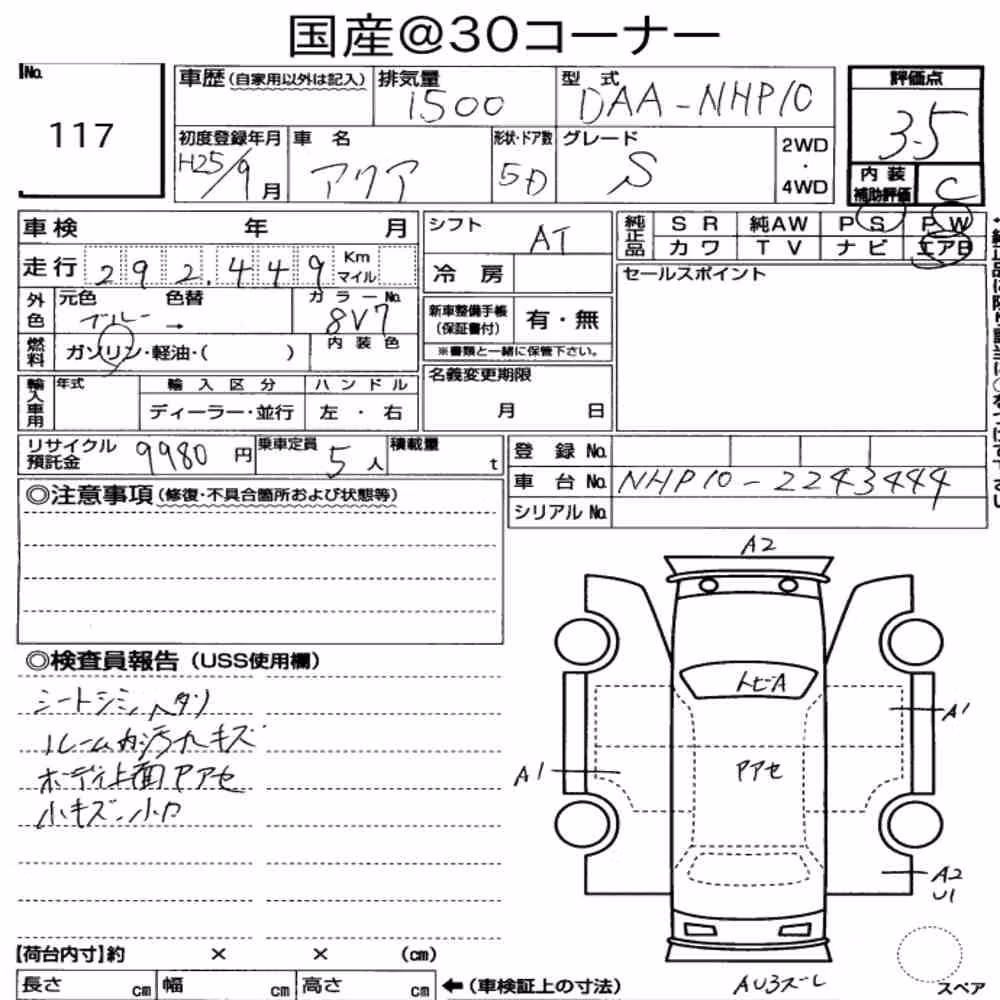 国産@30コーナー
No. 117
車歴(自家用以外は記入) 排気量 1500 型式 DAA-NHP10 評価点 3.5
初度登録年月 H25/9月 車名 アクア 形状・ドア数 5D グレード S 2WD・4WD
内装補助評価 C
車検 年 月 シフト AT
純正品 SR 純AW PS PW
カワ TV ナビ エアB
走行 292,449 Km マイル 冷房 セールスポイント
外色 元色 ブルー → 色替 カラーNo. 8V7
新車整備手帳(保証書付) 有・無
※書類と一緒に保管下さい。
燃料 ガソリン・軽油・( ) 内装色
輸入車用 年式 輸入区分 ハンドル 名義変更期限
ディーラー・並行 左・右 月 日
リサイクル預託金 9980円 乗車定員 5人 積載量 t
登録No.
車台No. NHP10-2243444
シリアルNo.
◎注意事項(修復・不具合箇所および状態等)
◎検査員報告(USS使用欄)
シートシミ、ヘタリ
ルーム内汚れキズ
ボディ上面Pアセ
小キズ、小凹
A2
トビA
A1
A1
Pアセ
A2
U1
AU3ズレ
スペア
【荷台内寸】約 × × (cm)
長さ cm 幅 cm 高さ cm ←(車検証上の寸法)